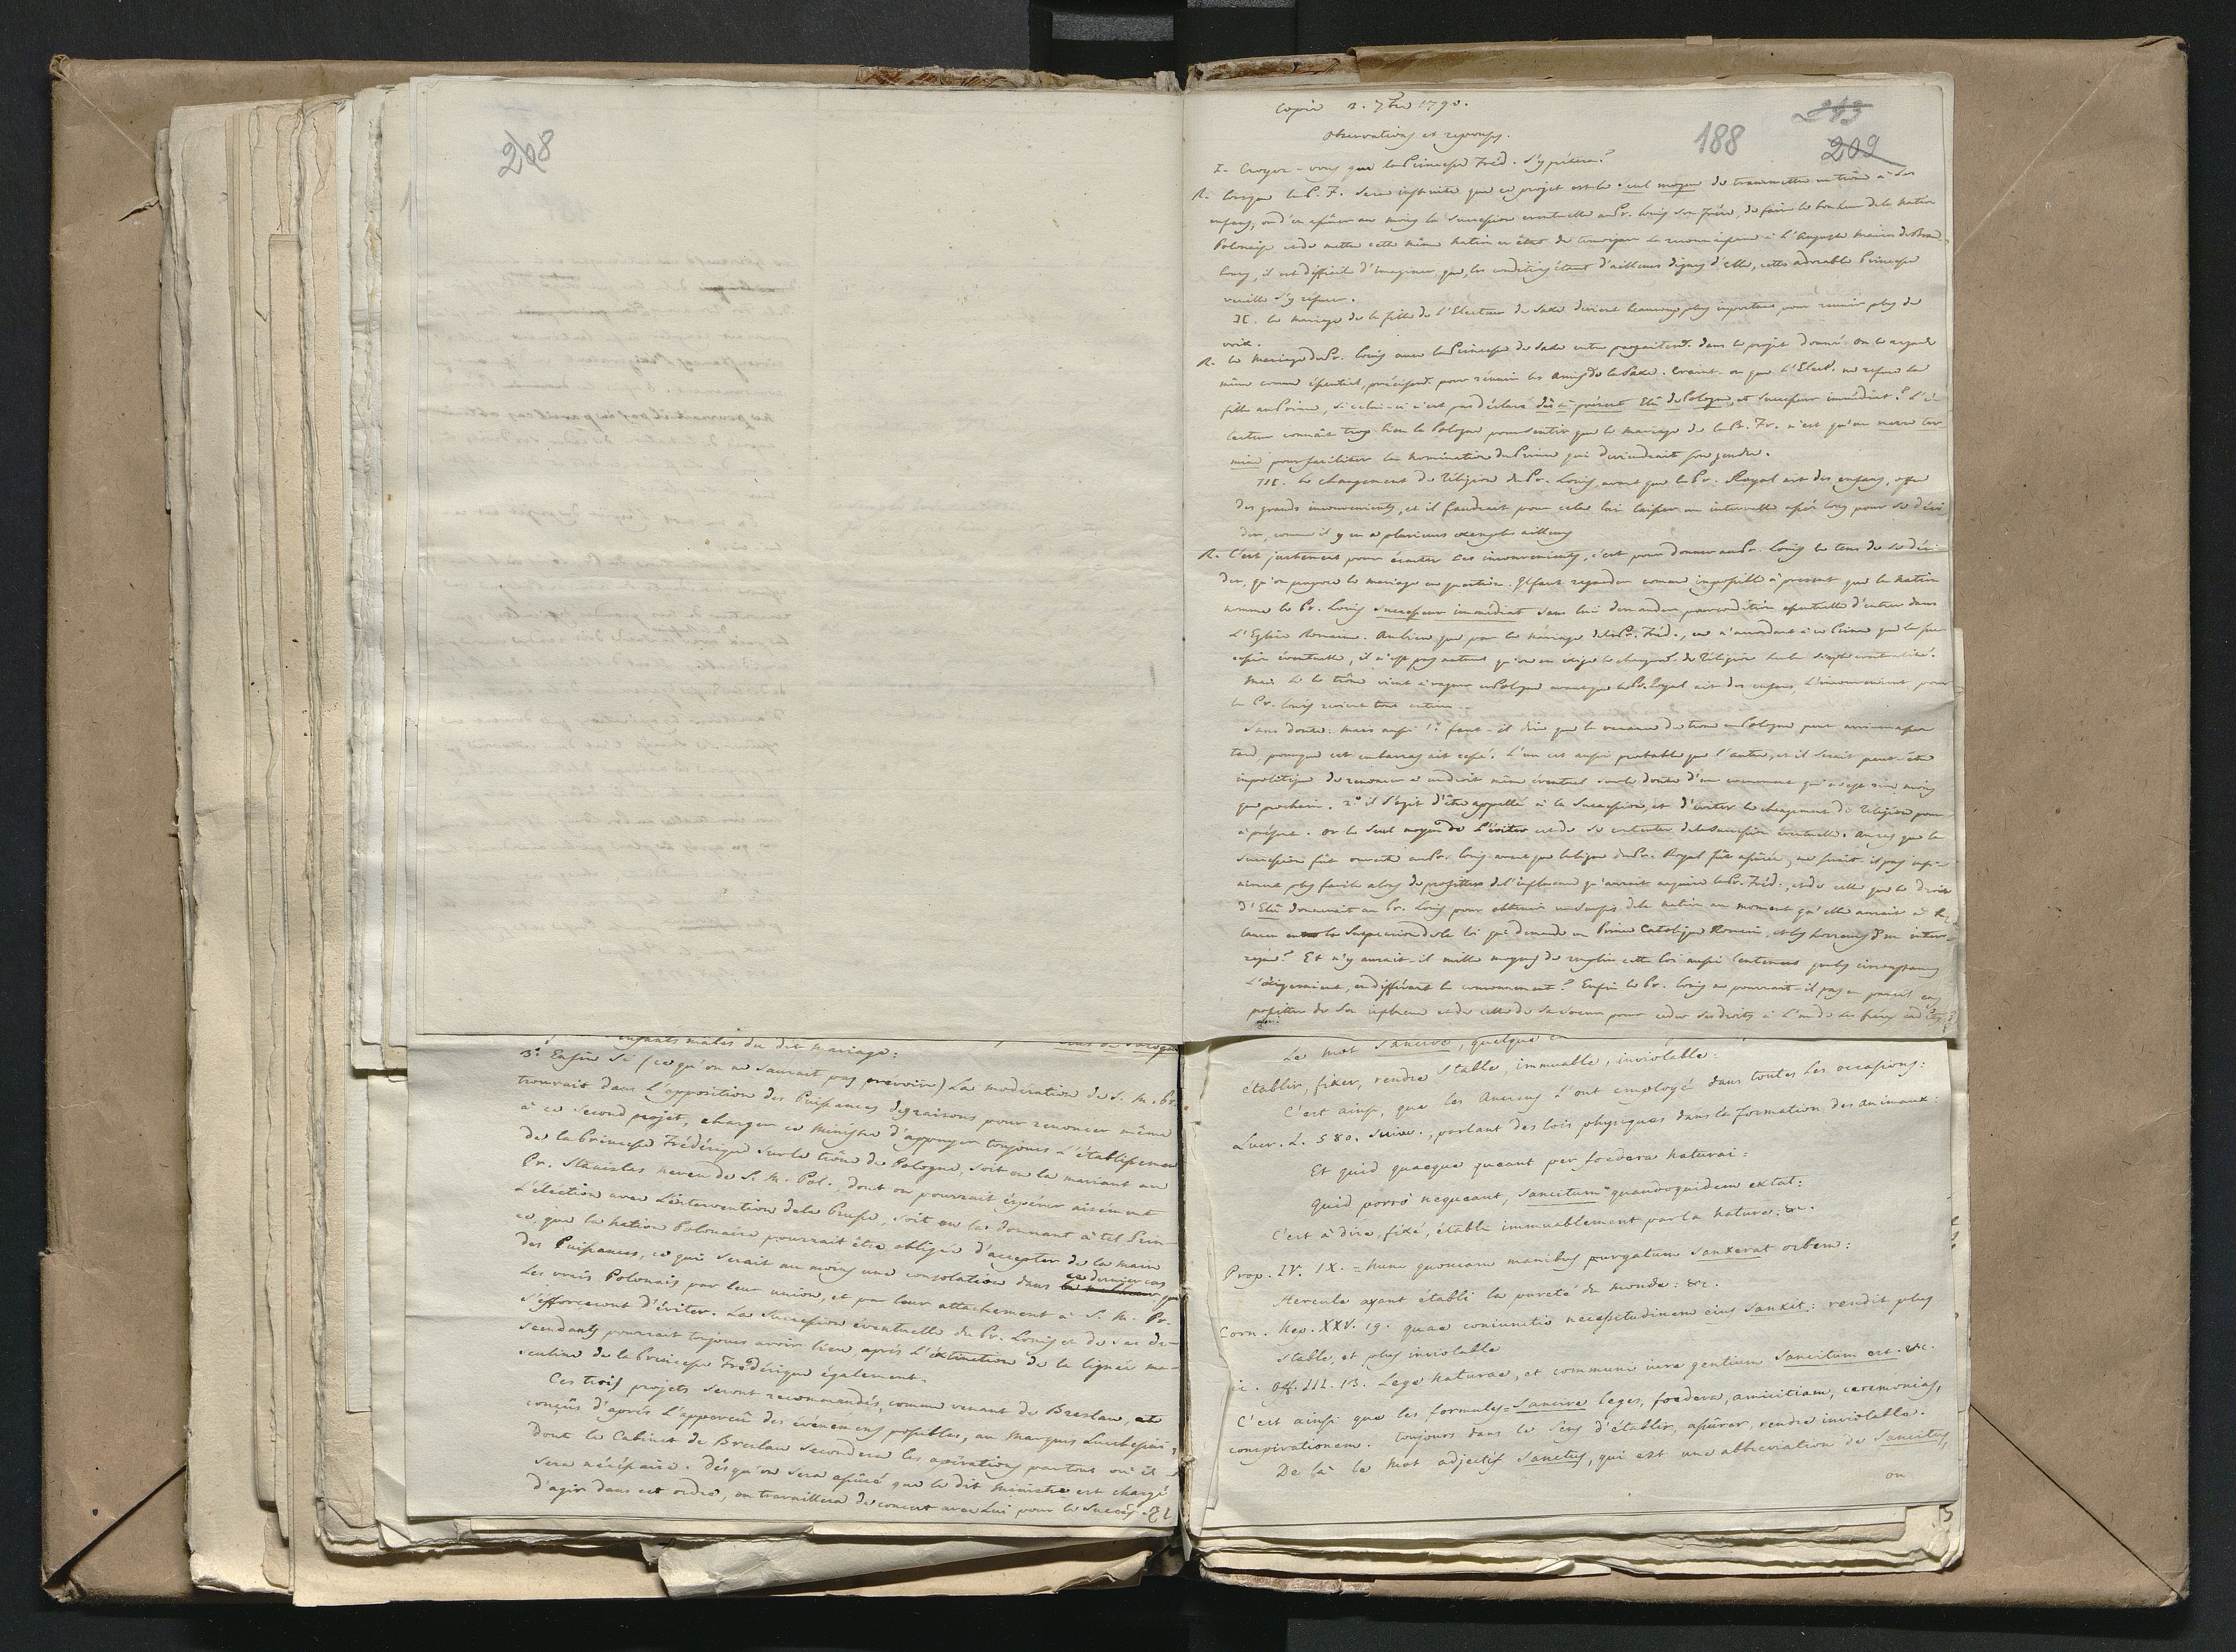 208
enfants mâles du dit mariage:
3.° Enfin si (ce qu'on ne saurait pas prévoir) La modération de S. M. Pr.
trouvait dans L'opposition des Puissances des raisons pour renoncer même
à ce second projet, charger ce Ministre d'appuyer toujours L'établissement
de la Princesse Frédérique sur le trône de Pologne, soit en la mariant au
Pr. Stanislas neveu de S. M. Pol., dont on pourrait espérer aisément
L'élection avec L'intervention de la Prusse, soit en la donnant à tel Prin-
ce, que la Nation Polonaise pourrait être obligée d'accepter de la main
des Puissances, ce qui serait au moins une consolation dans ce dernier cas que
Les vrais Polonais par leur union, et par leur attachement à S. M. Pr.
s'efforceront d'éviter. La Succession éventuelle du Pr. Louis et de ses de-
scendants pourrait toujours avoir lieu, après L'extinction de la lignée ma-
sculine de la Princesse Frédérique également.
Ces trois projets seront recommandés, comme venant de Breslau, et
conçûs d'après L'apperçû des événemens possibles, au Marquis Lucchesini,
dont le Cabinet de Breslau secondera les opérations partout où il
sera nécessaire. Dès qu'on sera assuré que le dit Ministre est chargé
d'agir dans cet ordre, on travaillera de concert avec Lui pour le succès.
Copie 2. 7bre 1790.
Observations et reponses.
188
209
I. Croyez-vous que la Princesse Fréd. s'y prêtera?
R. Lorsque la P. F. sera instruite que ce projet est le seul moyen de transmettre un trône à ses
enfans, ou d'en assurer au moins la succession eventuelle au Pr. Louis son Frère, de faire le bonheur de la Nation
Polonaise et de mettre cette même Nation en état de temoigner sa reconnaissance à l'Auguste Maison de Bran-
bourg, il est difficile d'imaginer que, les conditions étant d'ailleurs dignes d'elle, cette adorable Princesse
veuille s'y refuser.
II. Le mariage de la fille de l'Electeur de Saxe devient beaucoup plus important pour reunir plus de
voix.
R. Le Mariage du Pr. Louis avec la Princesse de Saxe entre parfaitemt. dans le projet donné. On le regarde
même comme essentiel, précisemt. pour réunir les amis de la Saxe. Craint-on que l'Elect. ne refuse sa
fille au Prince, si celui-ci n'est pas déclaré dès à présent Elû de Pologne, et successeur immédiat? L'E-
lecteur connait trop bien la Pologne pour sentir que le mariage de la P. Fr. n'est qu'un mezzo ter-
mine pour faciliter la nomination du Prince qui deviendrait son gendre.
III. Le changement de Réligion du Pr. Louis, avant que le Pr. Royal ait des enfans, offre
des grands inconvenients, et il faudrait pour cela lui laisser un intervalle assés long pour se déci-
der, comme il y en a plusieurs exemples ailleurs
R. C'est justement pour écarter ces inconvenients, c'est pour donner au Pr. Louis le tems de se déci-
der, qu'on propose le mariage en question. Il faut regarder comme impossible à present que la Nation
nomme le Pr. Louis successeur immédiat sans lui demander pour condition essentielle d'entrer dans
L'Eglise Romaine. Au lieu que par le mariage de la Pr. Fréd., en n'accordant à ce Prince que la suc-
cession éventuelle, il n'est pas naturel qu'on en exige le changemt. de Réligion sur la simple eventualité.
Mais si le trône vient à vaquer en Pologne avant que le Pr. Royal ait des enfans, L'inconvenient pour
le Pr. Louis revient tout entier.
Sans doute. Mais aussi 1.° faut-il dire que la vacance du trone en Pologne peut arriver assez
tard, pour que cet embarras ait cessé. L'un est aussi probable que l'autre, et il serait peut-être
impolitique de renoncer à un droit même éventuel sur le doute d'un evenement qui n'est rien moins
que prochain. 2.° il s'agit d'être appellé à la Succession, et d'éviter le changement de Réligion pour
à présent. Or le seul moyen de L'éviter est de se contenter de la succession éventuelle. Au cas que la
Succession fût ouverte au Pr. Louis avant que la ligne du Pr. Royal fût assurée, ne serait-il pas infi-
niment plus facile alors de profitter de l'influence qu'aurait acquise la Pr. Fréd., et de celle que le droit
d'Elû donnerait au Pr. Louis pour obtenir un sursis de la nation au moment qu'elle aurait à ba-
lancer entre la suspension de la loi qui demande un Prince Catolique Romain, et les horreurs d'un inter-
regne? Et n'y aurait-il mille moyens de remplir cette loi aussi lentement que les circonstances
L'éxigeraient, en différant le couronnement? Enfin le Pr. Louis ne pourrait-il pas en pareil cas
profitter de son influence et de celle de sa soeur pour ceder ses droits à L'un de ses frères cadets
Le mot Sancire, quelque
établir, fixer, rendre stable, immuable, inviolable:
C'est ainsi, que les Anciens L'ont employé dans toutes Les occasions:
Lucr. L. 580. suiv., parlant des lois physiques dans la formation des animaux:
Et quid quaeque queant per foedera naturai:
Quid porrò nequeant, sancitum quandoquidem extat:
C'est à dire, fixé, établi immuablement par la Nature. &c.
Prop. IV. IX. = Hunc quoniam manibus purgatum sanxerat orbem:
Hercule ayant établi la pureté du monde: &c.
Corn. Nep. XXV. 19. quae coniunctio necessitudinem eius sanxit: rendit plus
stable, et plus inviolable
ic. Off. III. 13. Lege Naturae, et communi iure gentium sancitum est. &c.
C'est ainsi que les formules = Sancire leges, foedera, amicitiam, ceremonias,
conspirationem. toujours dans le sens d'établir, assurer, rendre inviolable.
De là le mot adjectif Sanctus, qui est une abbréviation de Sancitus,
ou